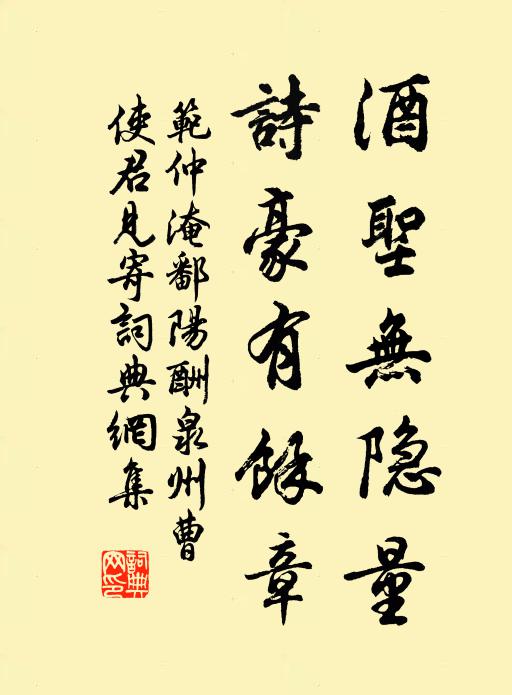 酒聖無隐量
詩豪有餘章
範仲淹鄱陽酬泉州曹
使君見寄詞典網集
詞典網印